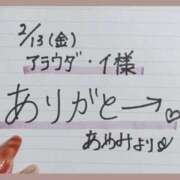 2/13(金)
アラウダ・イ様
ありがとー→♡
あゆみより♡